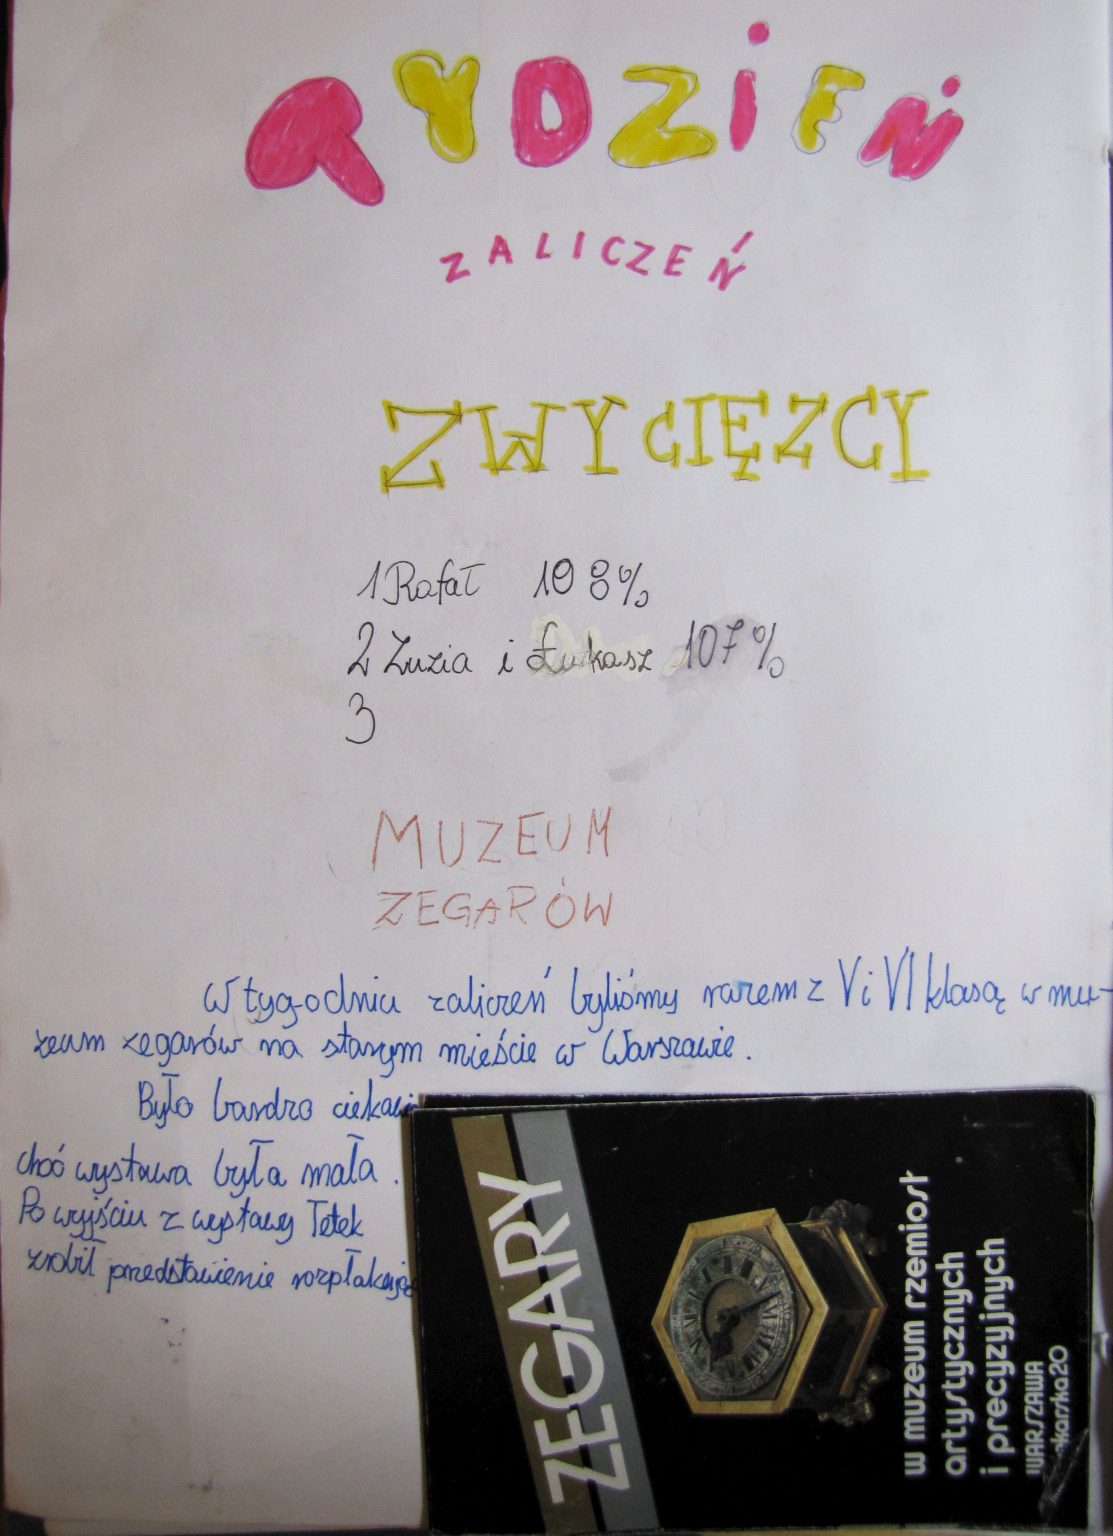 TYDZIEŃ
ZALICZEŃ
ZWYCIĘZCY
1 Rafał 108%
2 Zuzia i Łukasz 107%
3
MUZEUM
ZEGARÓW
W tygodniu zaliczeń byliśmy razem z V i VI klasą w mu-
zeum zegarów na starym mieście w Warszawie.
Było bardzo ciekawie
choć wystawa była mała.
Po wyjściu z wystawy Tetek
zrobił przedstawienie
ZEGARY
w muzeum rzemiosł
artystycznych
i precyzyjnych
WARSZAWA
20